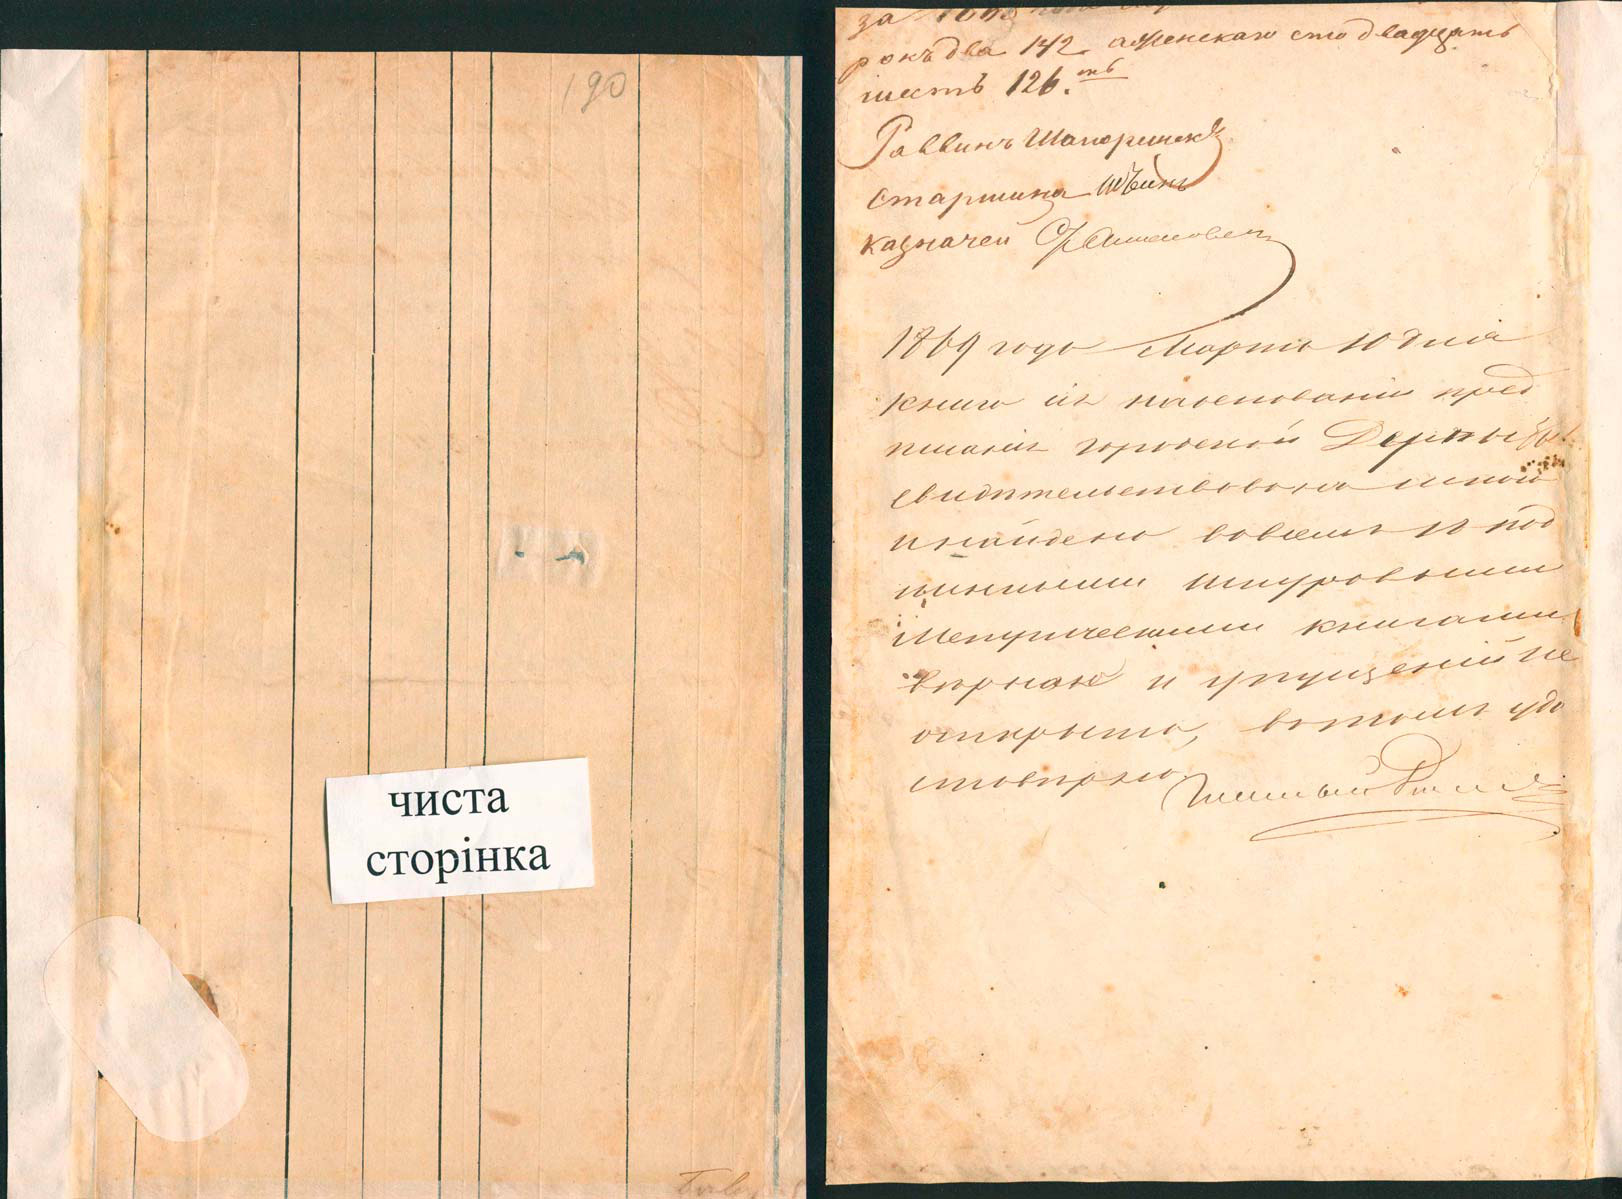 190
чиста
сторінка
за
рокъ два 142 а женскаго сто двадцать
шесть 126.
Раввинъ
Старшина
казначей
1869 года Марта 10 дня
книга на основаніи пред
писанія городской
свидѣтельствована мною
и найдена во всемъ съ под
линными шнуровыми
Метрическими книгами
вѣрною и упущеній не
открыто, въ томъ удо
стовѣряю